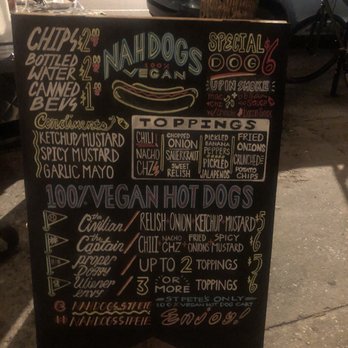 CHIPS $2
BOTTLED WATER $2
CANNED BEVS $1
NAHDOGS
100% VEGAN
SPECIAL DOG $6
UP IN SMOKE
Condiments
KETCHUP/MUSTARD
SPICY MUSTARD
GARLIC MAYO
TOPPINGS
CHILI
NACHO CHZ
CHOPPED ONION
SAUERKRAUT
SWEET RELISH
PICKLED BANANA PEPPERS
PICKLED JALAPENOS
FRIED ONIONS
CRUNCHED POTATO CHIPS
100% VEGAN HOT DOGS
the Civilian / RELISH ONION KETCHUP MUSTARD $5
the Captain / CHILI NACHO CHZ FRIED ONIONS SPICY MUSTARD $6
proper Doggy / UP TO 2 TOPPINGS $5
Wiener envy / 3 OR MORE TOPPINGS $6
NAHDOGSSTPETE
NAHDOGSSTPETE
ST PETE'S ONLY
100% VEGAN HOT DOG CART
Enjoy!